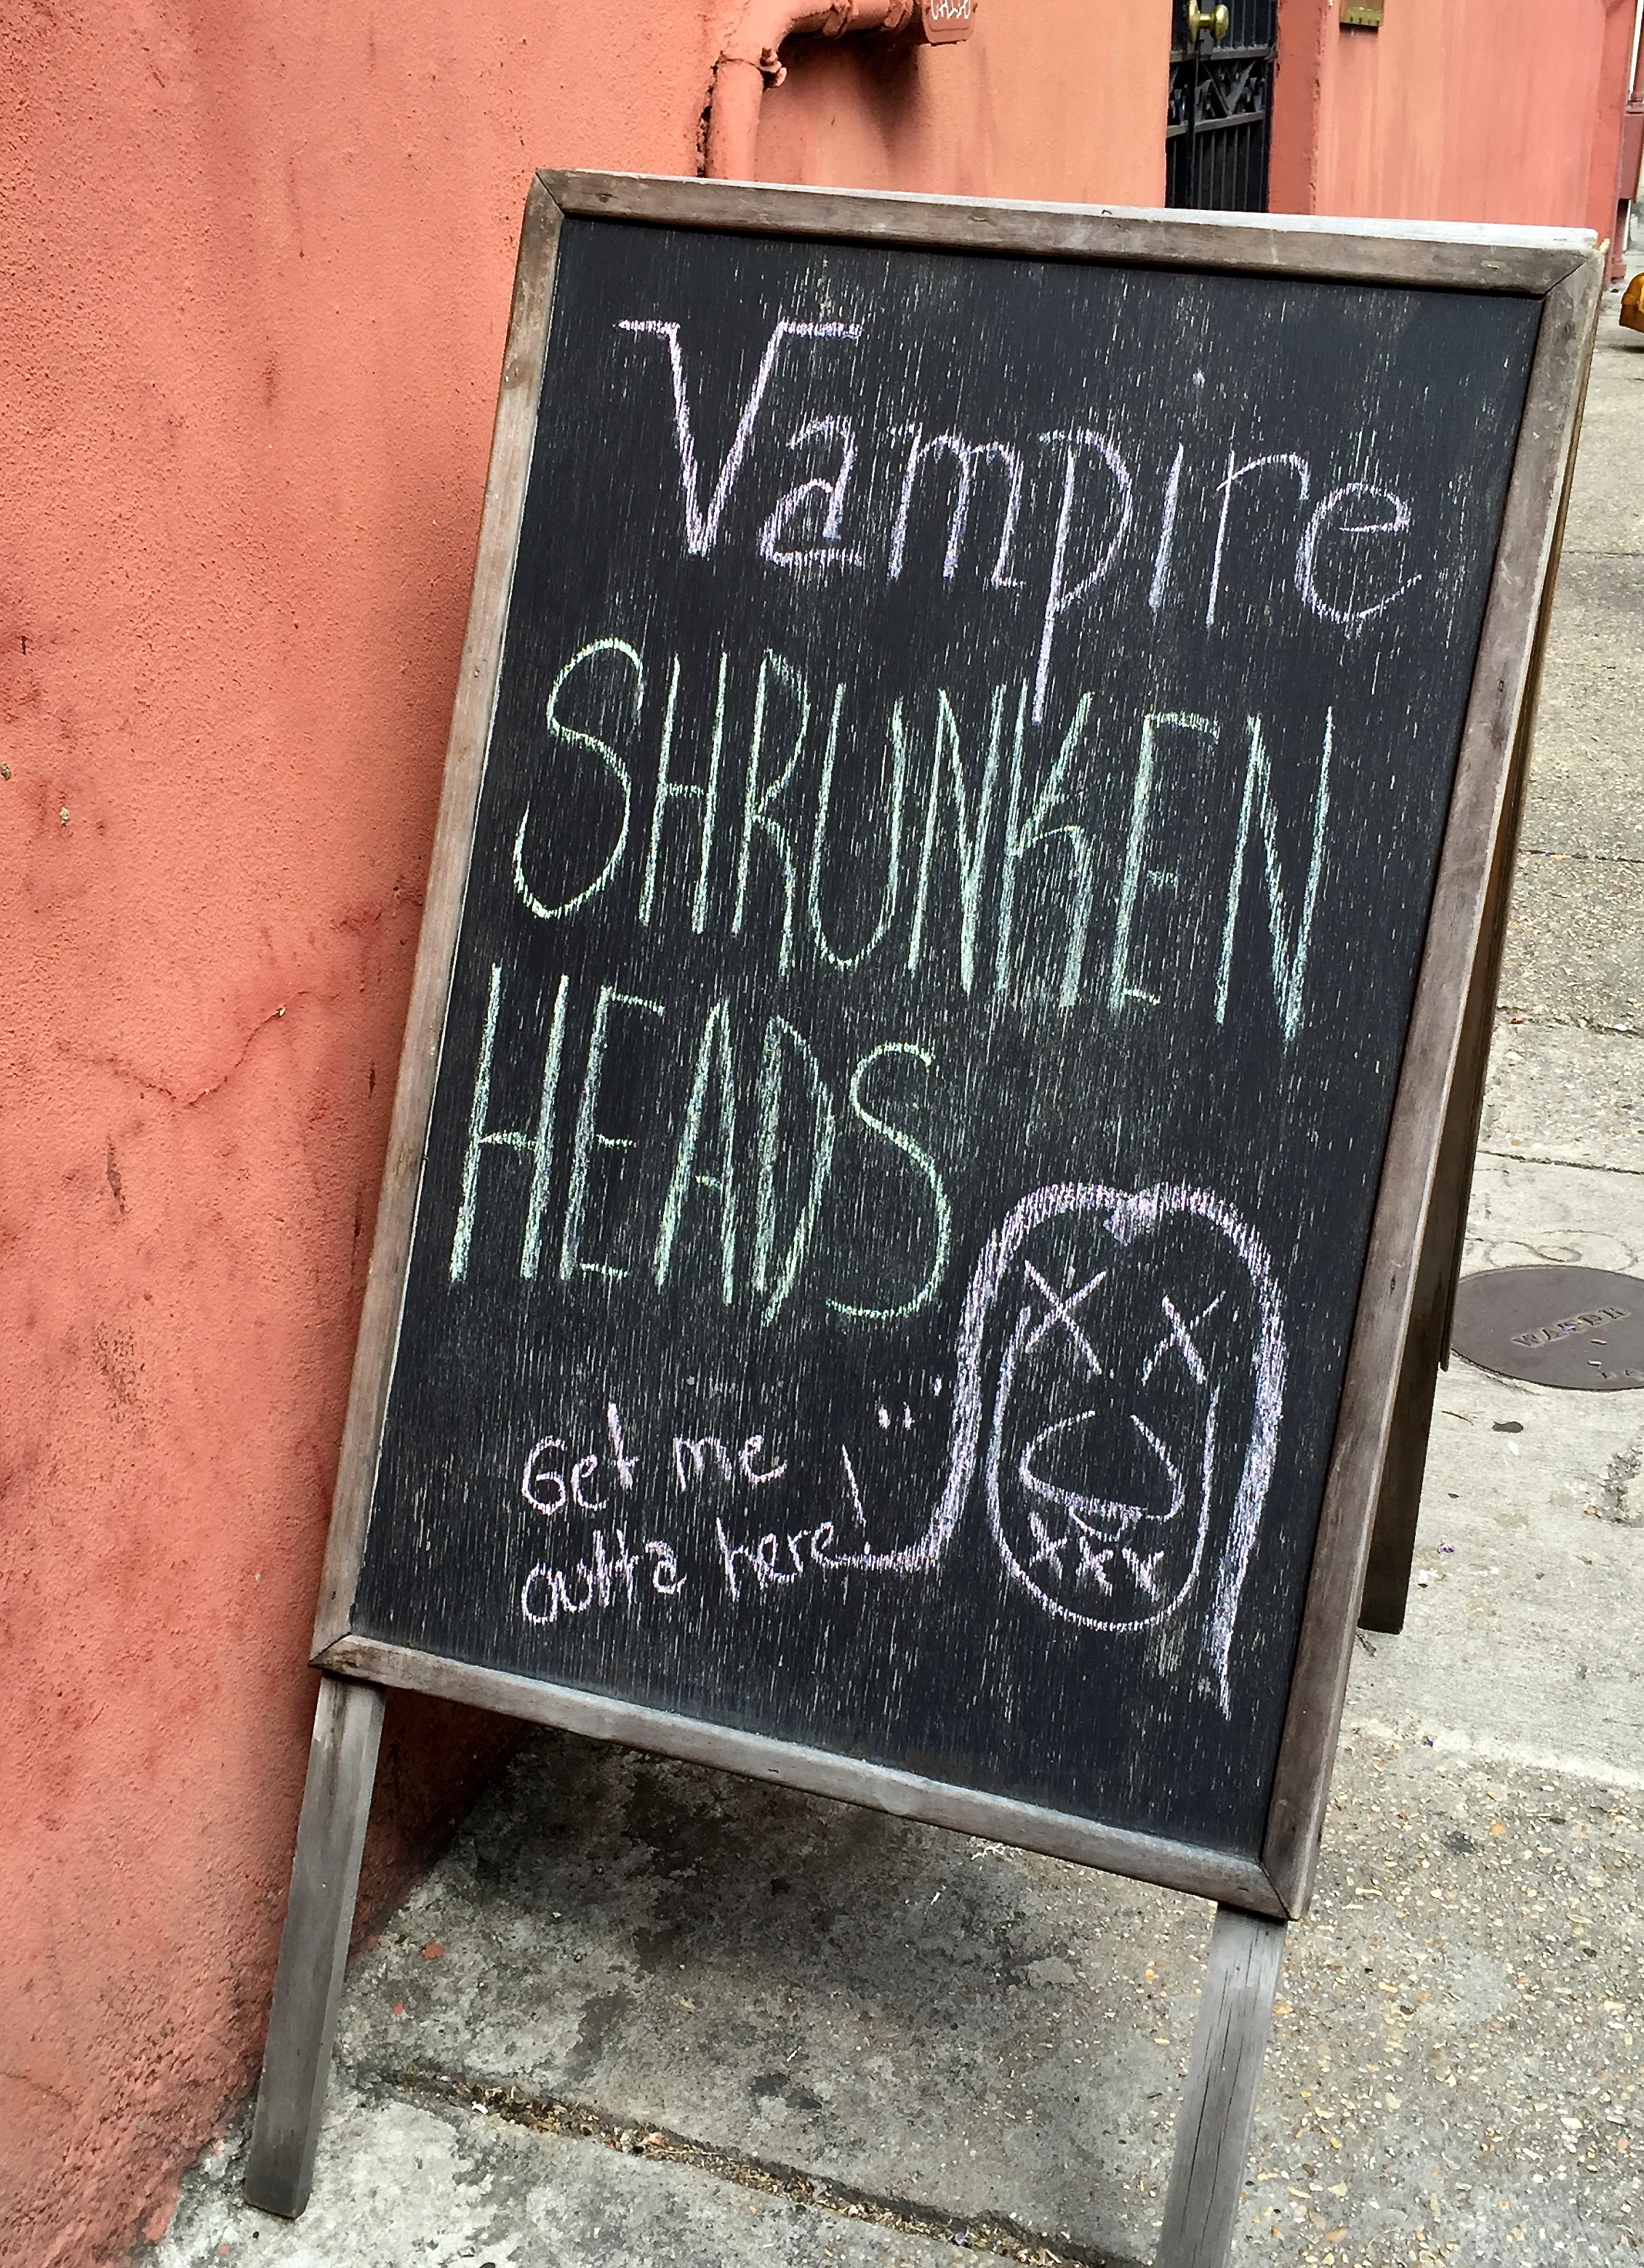 Vampire
SHRUNKEN
HEADS
Get me
outta here!"
WATER